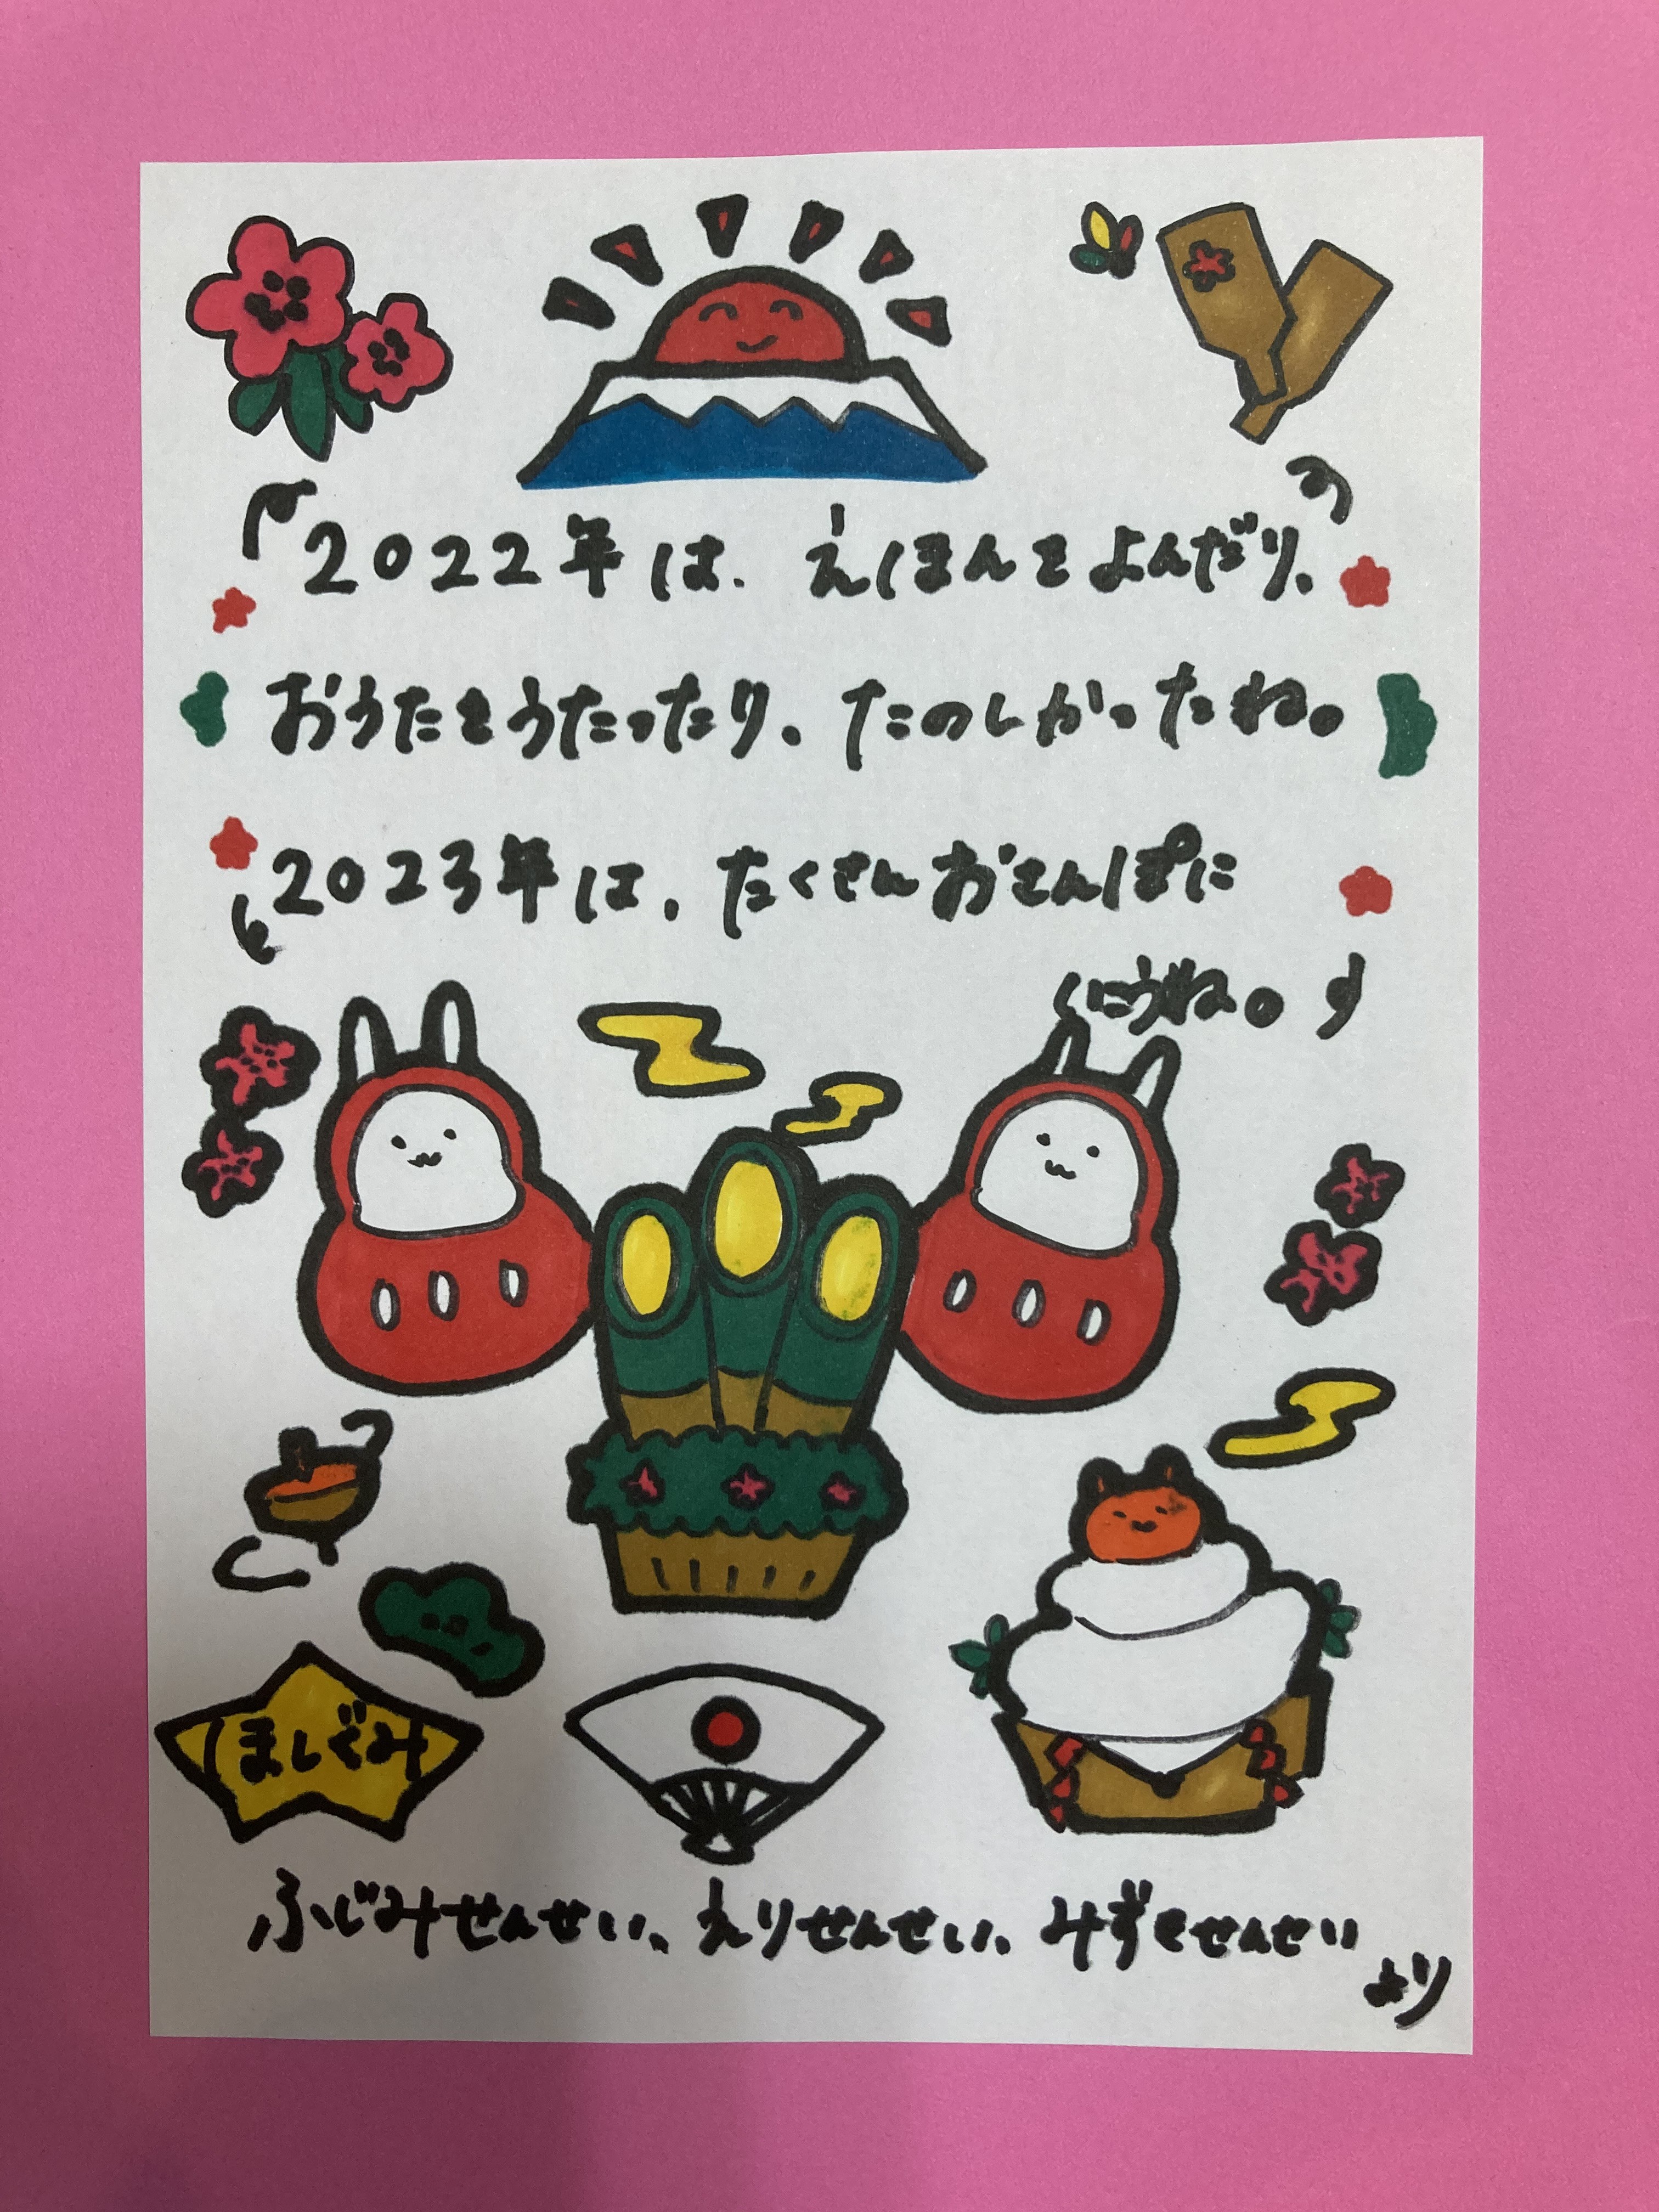 2022年は、えほんをよんだり、
おうたをうたったり、たのしかったね。
2023年は、たくさんおさんぽに
いこうね。
ほしぐみ
ふじみせんせい、えりせんせい、みずきせんせい
より